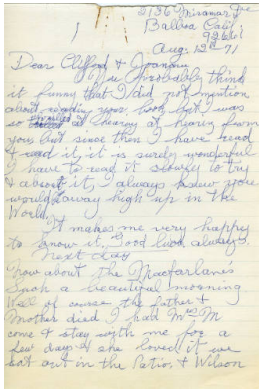 2136 Miramar Dr
Balboa Calif
92661
Aug. 12th 71
Dear Clifford & Joanna
You probably think
it funny that I did not mention
about reading your book but I was
so at hearing from
you, but since then I have read
& read it, it is surely wonderful
I have to read it slowly to try
& absorb it, I always knew you
would away high up in the
World.
It makes me very happy
to know it, Good luck always.
Next day
Now about the Macfarlanes
Such a beautiful morning
Well of course the father &
Mother died I had Mrs M
come & stay with me for a
few days & she loved it we
eat out in the Patio & Wilson